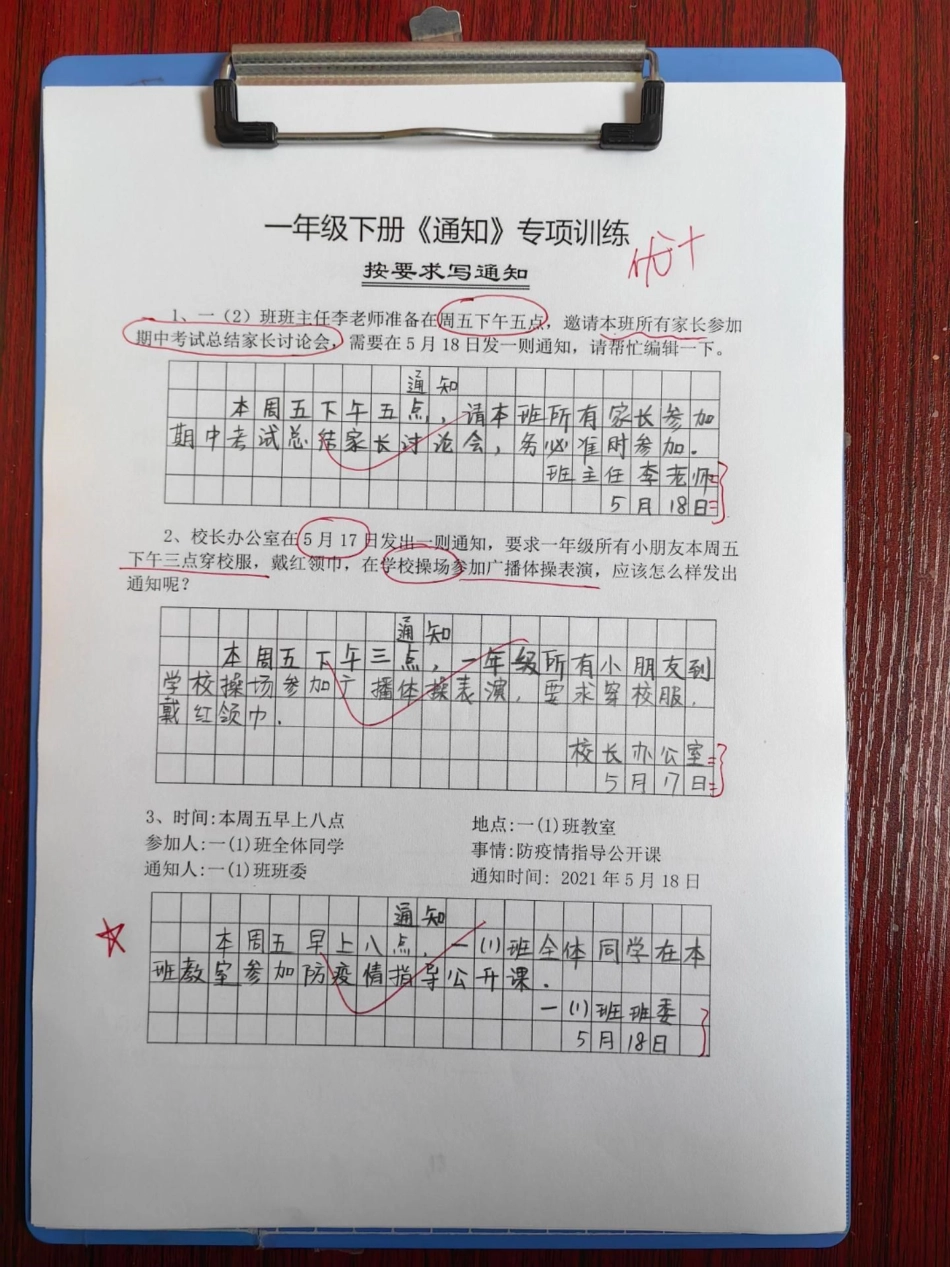 一年级下册《通知》专项训练
优+
按要求写通知
1、一（2）班班主任李老师准备在周五下午五点，邀请本班所有家长参加
期中考试总结家长讨论会，需要在5月18日发一则通知，请帮忙编辑一下。
通知
本周五下午五点，请本班所有家长参加
期中考试总结家长讨论会，务必准时参加.
班主任李老师
5月18日
2、校长办公室在5月17日发出一则通知，要求一年级所有小朋友本周五
下午三点穿校服，戴红领巾，在学校操场参加广播体操表演，应该怎么样发出
通知呢？
通知
本周五下午三点，一年级所有小朋友到
学校操场参加广播体操表演，要求穿校服.
戴红领巾.
校长办公室
5月17日
3、时间:本周五早上八点 地点:一(1)班教室
参加人:一(1)班全体同学 事情:防疫情指导公开课
通知人:一(1)班班委 通知时间: 2021年5月18日
通知
本周五早上八点，一(1)班全体同学在本
班教室参加防疫情指导公开课.
一(1)班班委
5月18日